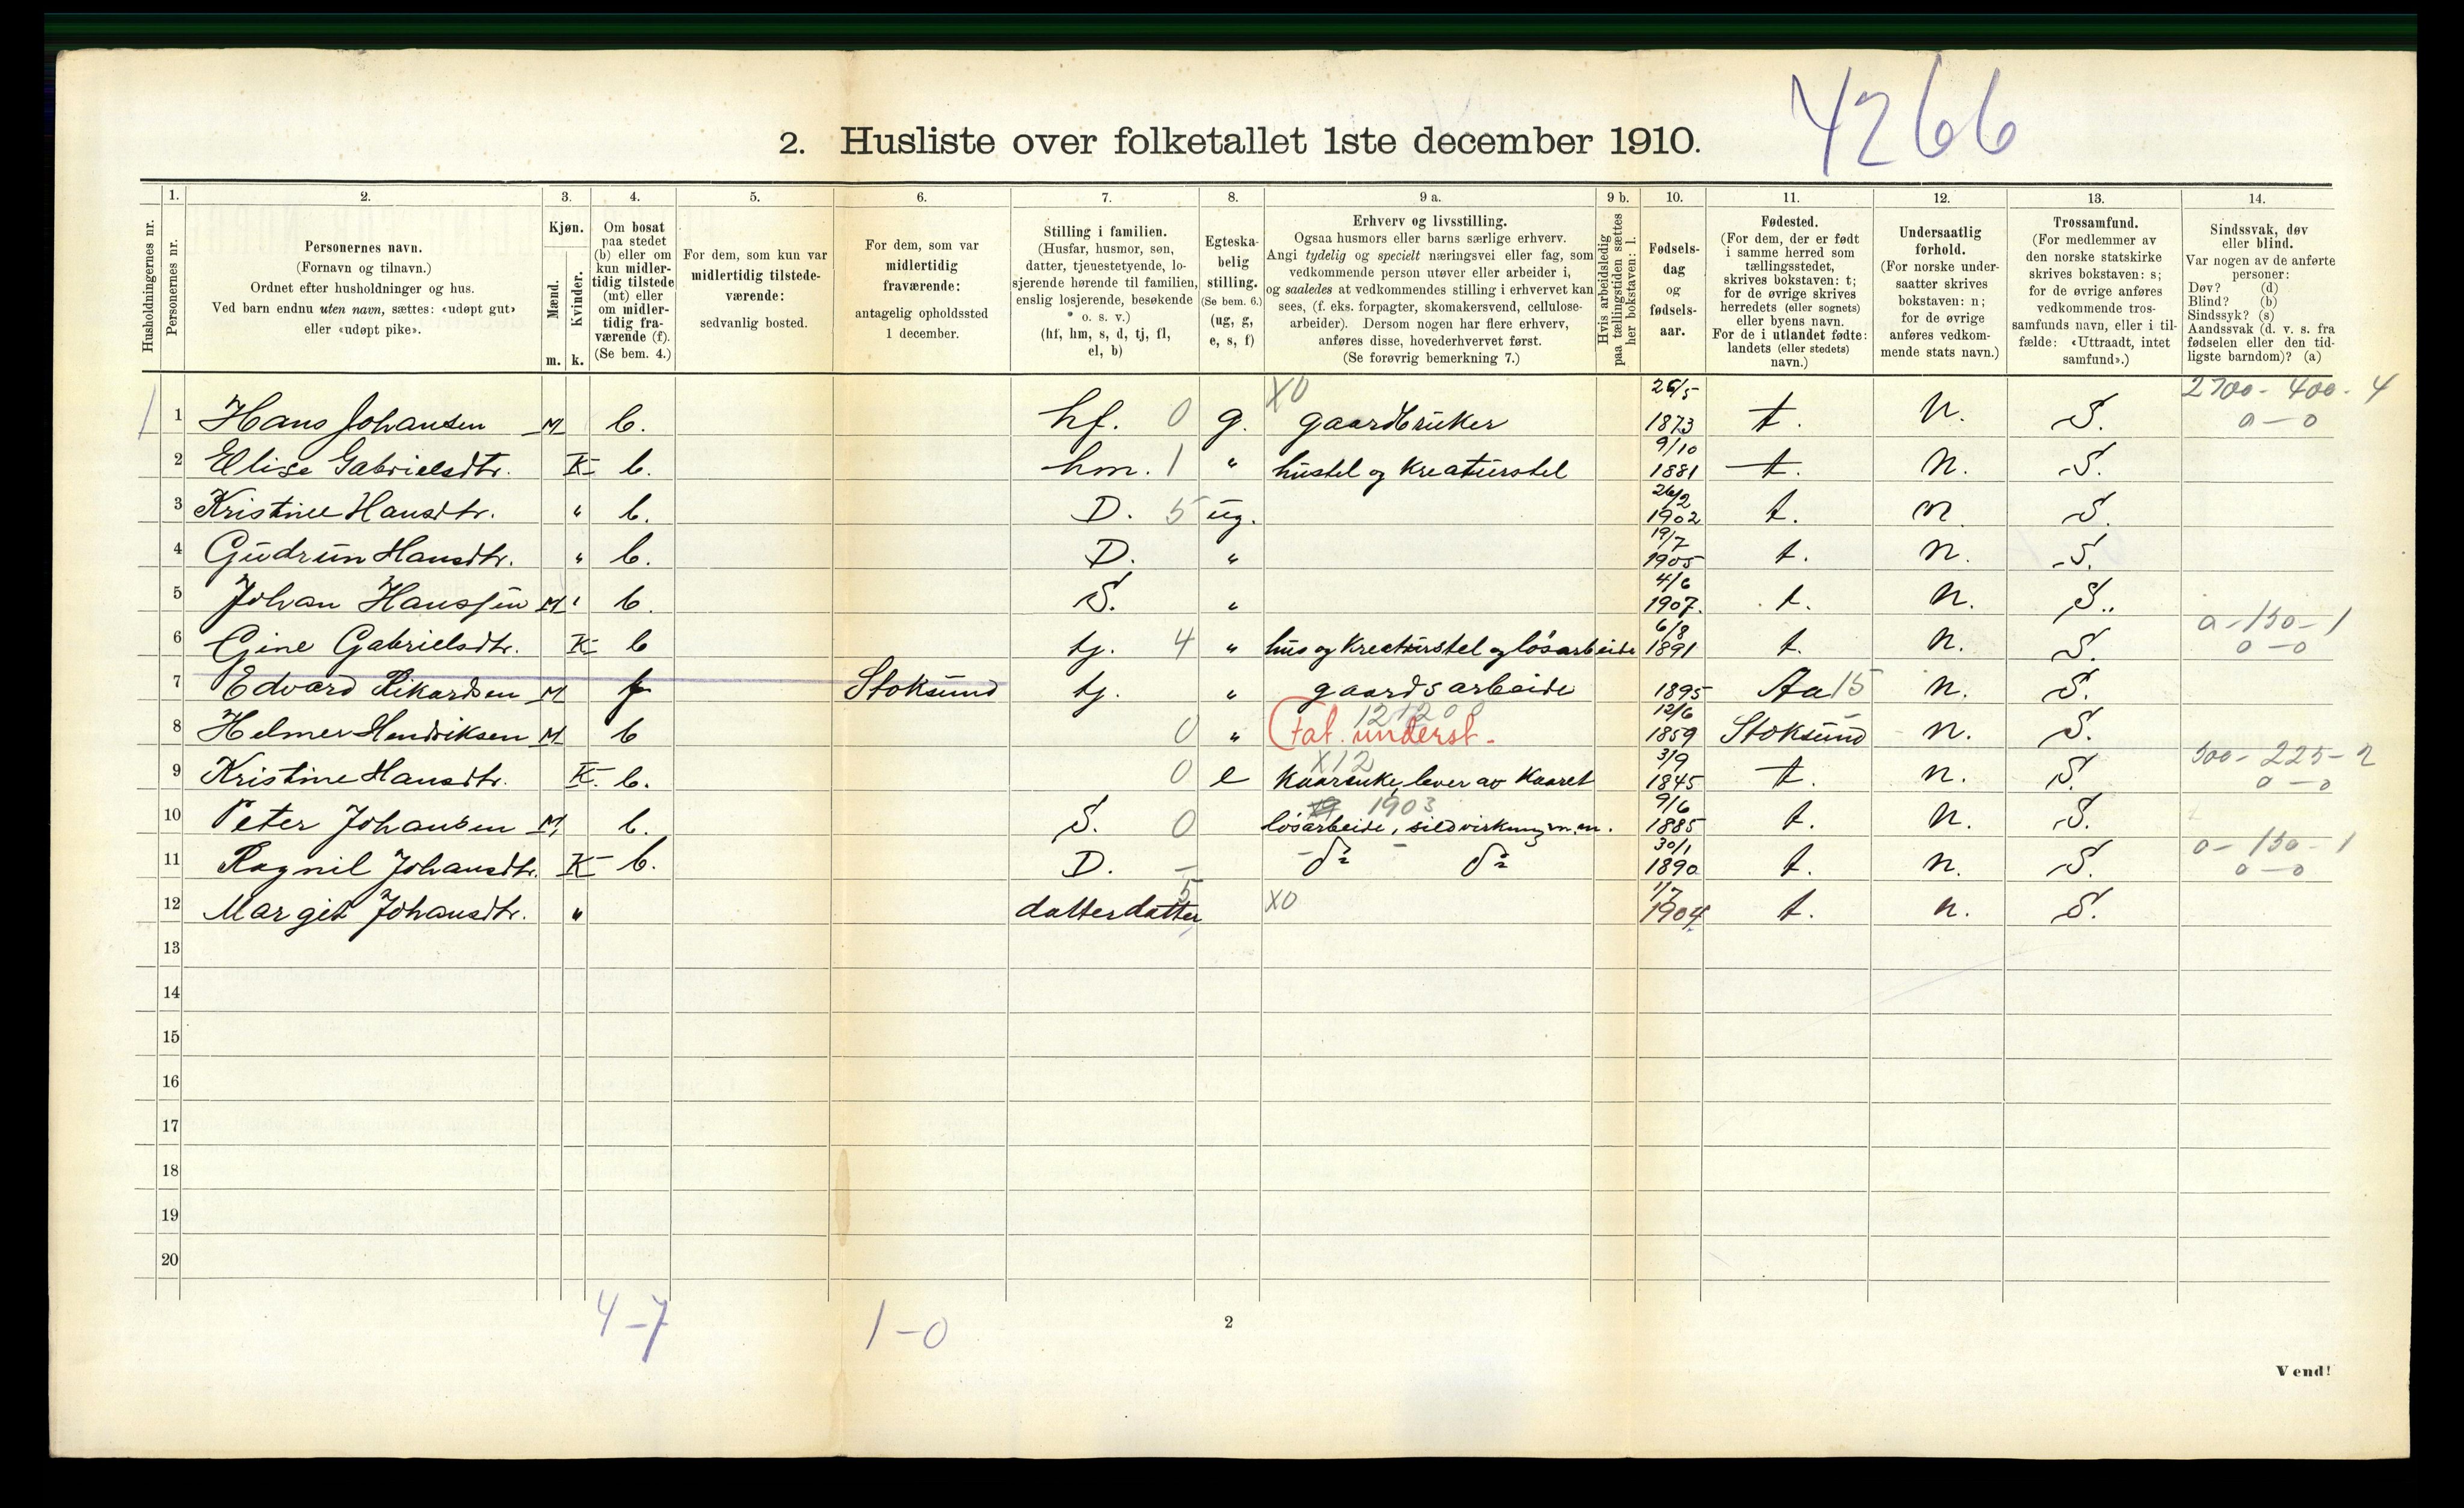 4266
2. Husliste over folketallet 1ste december 1910.
1. 2. 3. 4. 5. 6. 7. 8. 9 a. 9 b. 10. 11. 12. 13. 14.
Husholdningernes nr.
Personernes nr.
Personernes navn.
(Fornavn og tilnavn.)
Ordnet efter husholdninger og hus.
Ved barn endnu uten navn, sættes: «udøpt gut»
eller «udøpt pike».
Kjøn.
Mænd.
Kvinder.
m. k.
Om bosat
paa stedet
(b) eller om
kun midler-
tidig tilstede
(mt) eller
om midler-
tidig fra-
værende (f).
(Se bem. 4.)
For dem, som kun var
midlertidig tilstede-
værende:
sedvanlig bosted.
For dem, som var
midlertidig
fraværende:
antagelig opholdssted
1 december.
Stilling i familien.
(Husfar, husmor, søn,
datter, tjenestetyende, lo-
sjerende hørende til familien,
enslig losjerende, besøkende
o. s. v.)
(hf, hm, s, d, tj, fl,
el, b)
Egteska-
belig
stilling.
(Se bem. 6.)
(ug, g,
e, s, f)
Erhverv og livsstilling.
Ogsaa husmors eller barns særlige erhverv.
Angi tydelig og specielt næringsvei eller fag, som
vedkommende person utøver eller arbeider i,
og saaledes at vedkommendes stilling i erhvervet kan
sees, (f. eks. forpagter, skomakersvend, cellulose-
arbeider). Dersom nogen har flere erhverv,
anføres disse, hovederhvervet først.
(Se forøvrig bemerkning 7.)
Hvis arbeidsledig
paa tællingstiden sættes
her bokstaven: l.
Fødsels-
dag
og
fødsels-
aar.
Fødested.
(For dem, der er født
i samme herred som
tællingsstedet,
skrives bokstaven: t;
for de øvrige skrives
herredets (eller sognets)
eller byens navn.
For de i utlandet fødte:
landets (eller stedets)
navn.)
Undersaatlig
forhold.
(For norske under-
saatter skrives
bokstaven: n;
for de øvrige
anføres vedkom-
mende stats navn.)
Trossamfund.
(For medlemmer av
den norske statskirke
skrives bokstaven: s;
for de øvrige anføres
vedkommende tros-
samfunds navn, eller i til-
fælde: «Uttraadt, intet
samfund».)
Sindssvak, døv
eller blind.
Var nogen av de anførte
personer:
Døv? (d)
Blind? (b)
Sindssyk? (s)
Aandssvak (d. v. s. fra
fødselen eller den tid-
ligste barndom)? (a)
X0 26/5 2700 - 400 - 4
1 1 Hans Johansen M b. hf. 0 g. gaardbruker 1873 t. n. S. 0 - 0
9/10
2 Elise Gabrielsdtr. K b. hm. 1 " hustel og Kreaturstel 1881 t. n. S.
26/2
3 Kristine Hansdtr. " b. D. 5 ug. 1902 t. n S.
19/7
4 Gudrun Hansdtr. " b. D. " 1905 t. n. S.
4/6
5 Johan Hanssen M " b. S. " 1907. t. n. S.
6/8 0 - 150 - 1
6 Gine Gabrielsdtr. K b tj. 4 " hus og Kreaturstel og løsarbeide 1891 t. n. S. 0 - 0
7 Edvard Rikardsen M f Stoksund tj. " gaardsarbeide 1895 Aa 15 n. S.
12/6
8 Helmer Hendriksen M b 0 " Fat. underst. 1859 Stoksund n. S.
X12 3/9 300 - 225 - 2
9 Kristine Hansdtr. K. b. 0 e Kaarenke, lever av Kaaret 1845 t. n. S. 0 - 0
1903 9/6
10 Peter Johansen M, b. S. 0 løsarbeide, sildvirkning m.m. 1885 t. n. S.
30/1 0 - 150 - 1
11 Ragnil Johansdtr. K b. D. - do do 1890 t. n. S. 0 - 0
5 X0 1/7
12 Margit Johansdtr. " datterdatter 1904 t. n. S.
13
14
15
16
17
18
19
20
4-7 1-0
2
Vend!